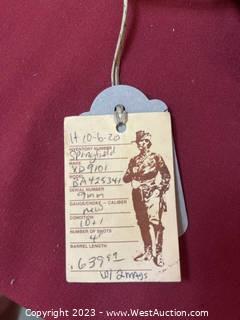 H 10-6-20
INVENTORY NUMBER
Springfield
MAKE
XD9101
MODEL
BA425341
SERIAL NUMBER
9mm
GAUGE/CHOKE - CALIBER
new
CONDITION
10+1
NUMBER OF SHOTS
4"
BARREL LENGTH
639.99
w/2mags
© 2023 - www.WestAuction.com